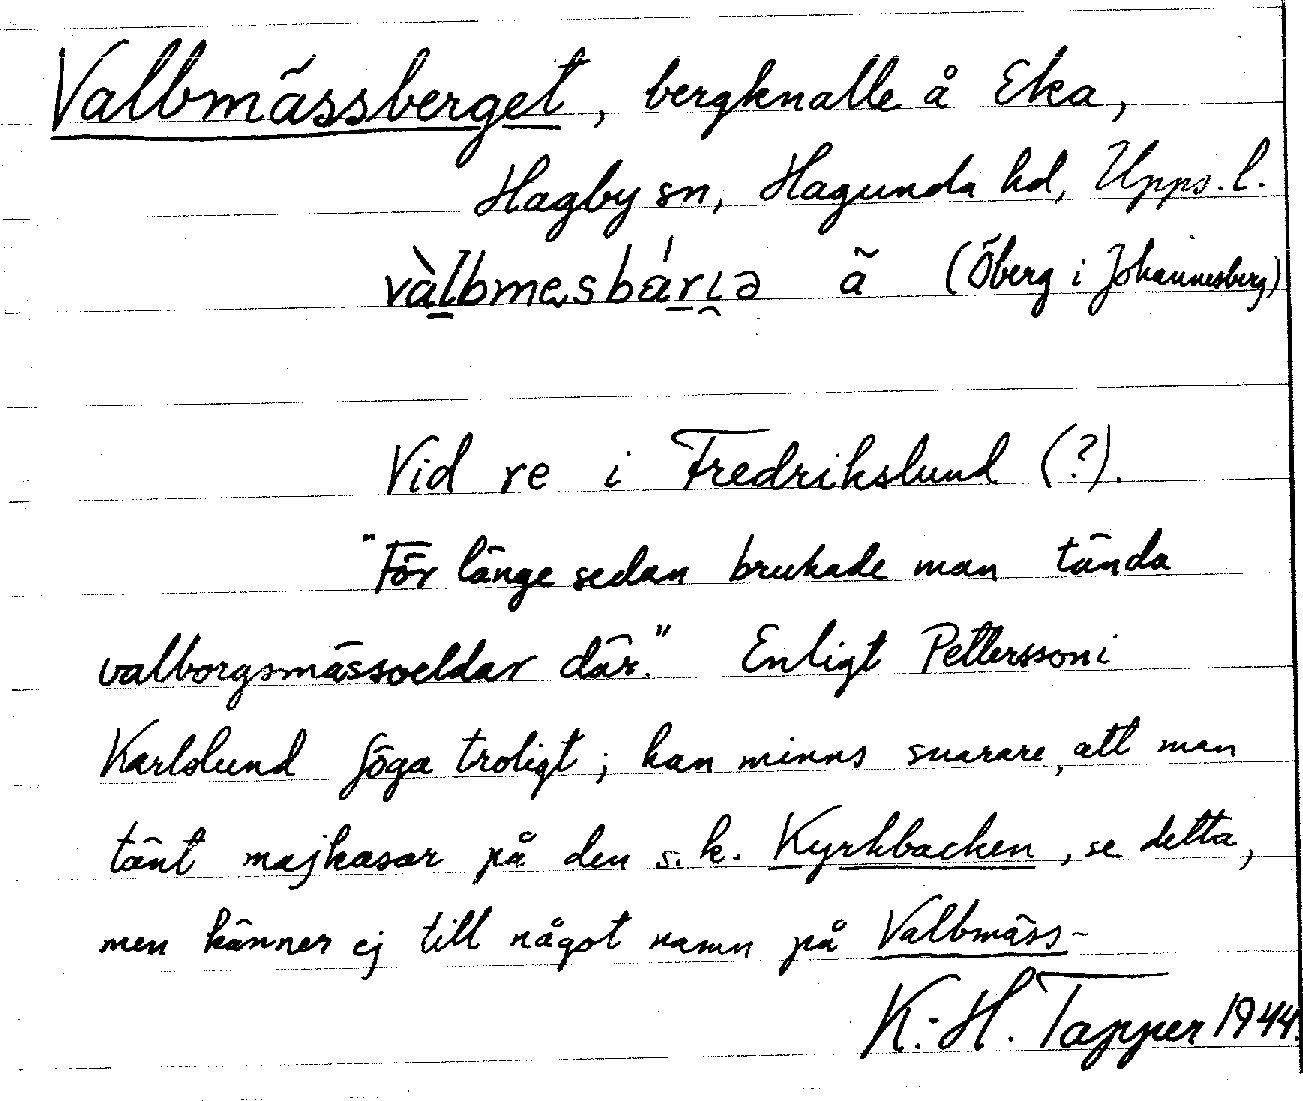 Valbmässberget, bergknalle å Eka,
Hagby sn, Hagunda hd, Upps. l.
vàlbmesbárɩə ä (Öberg i Johannesberg)
Vid re i Fredrikslund (?).
"För länge sedan brukade man tända
valborgsmässoeldar där." Enligt Pettersson i
Karlslund föga troligt; han minns snarare, att man
tänt majkasar på den s.k. Kyrkbacken, se detta,
men känner ej till något namn på Valbmäss-
K.-H. Tapper 1944.